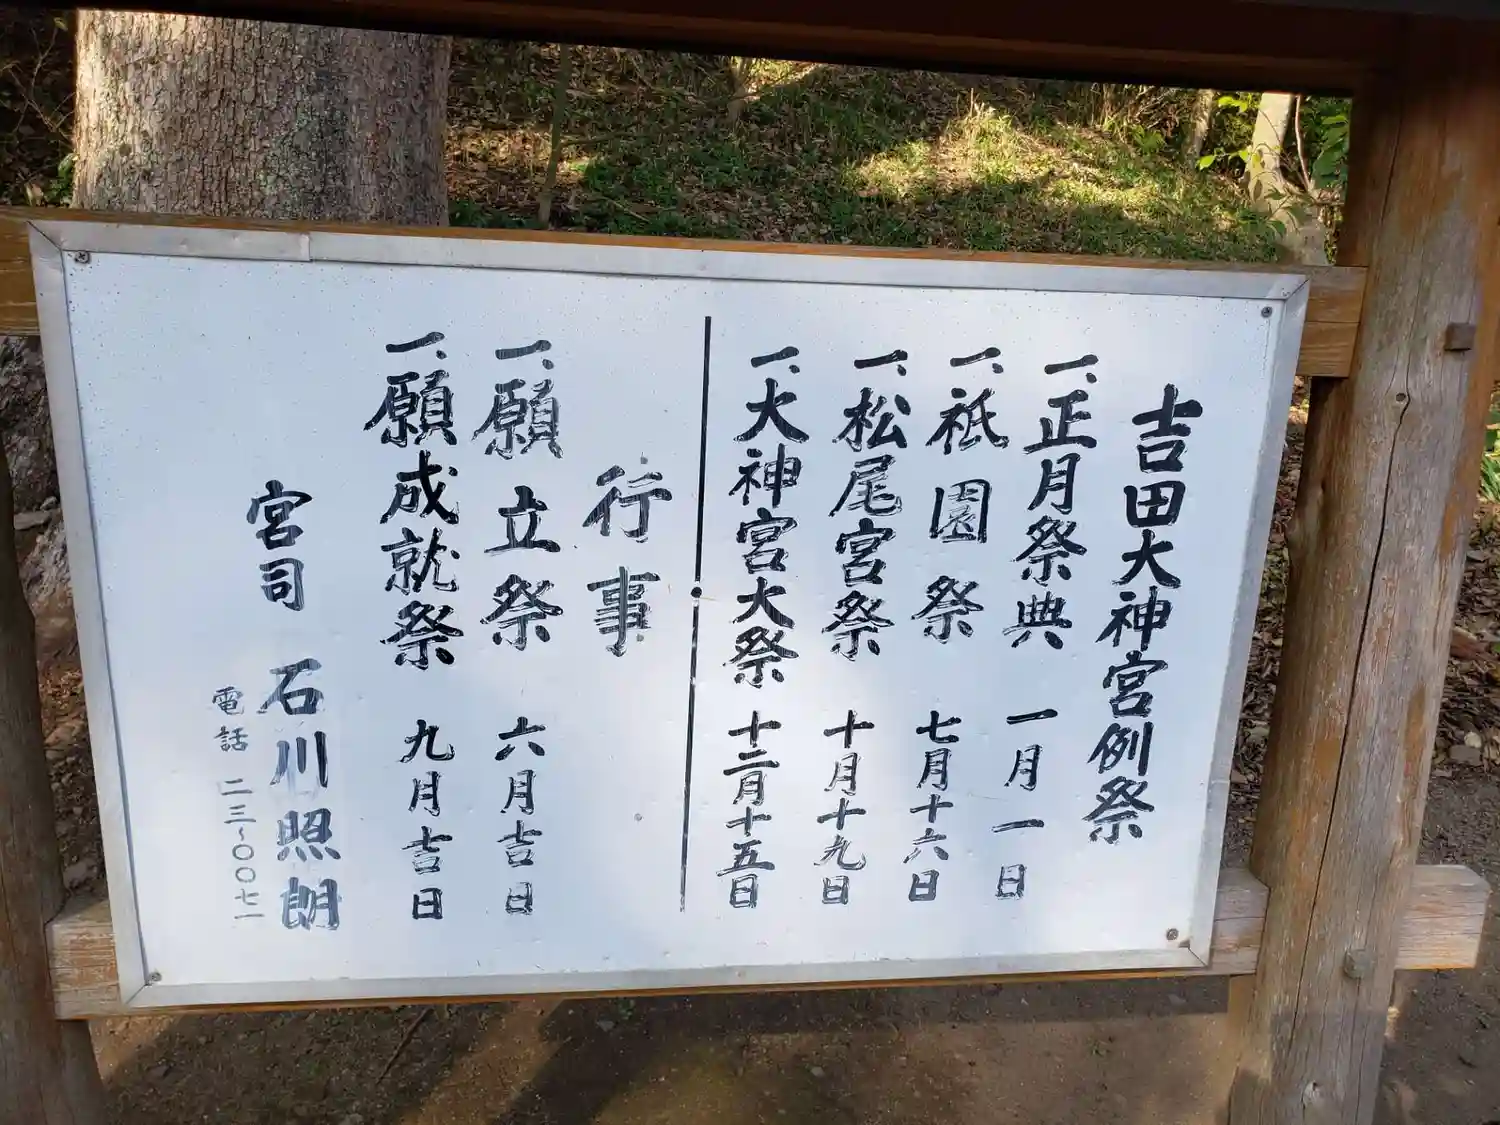 吉田大神宮例祭
一、正月祭典 一月一日
一、祇園祭 七月十六日
一、松尾宮祭 十月十九日
一、大神宮大祭 十二月十五日
行事
一、願立祭 六月吉日
一、願成就祭 九月吉日
宮司 石川照朗
電話 二三〜〇〇七一